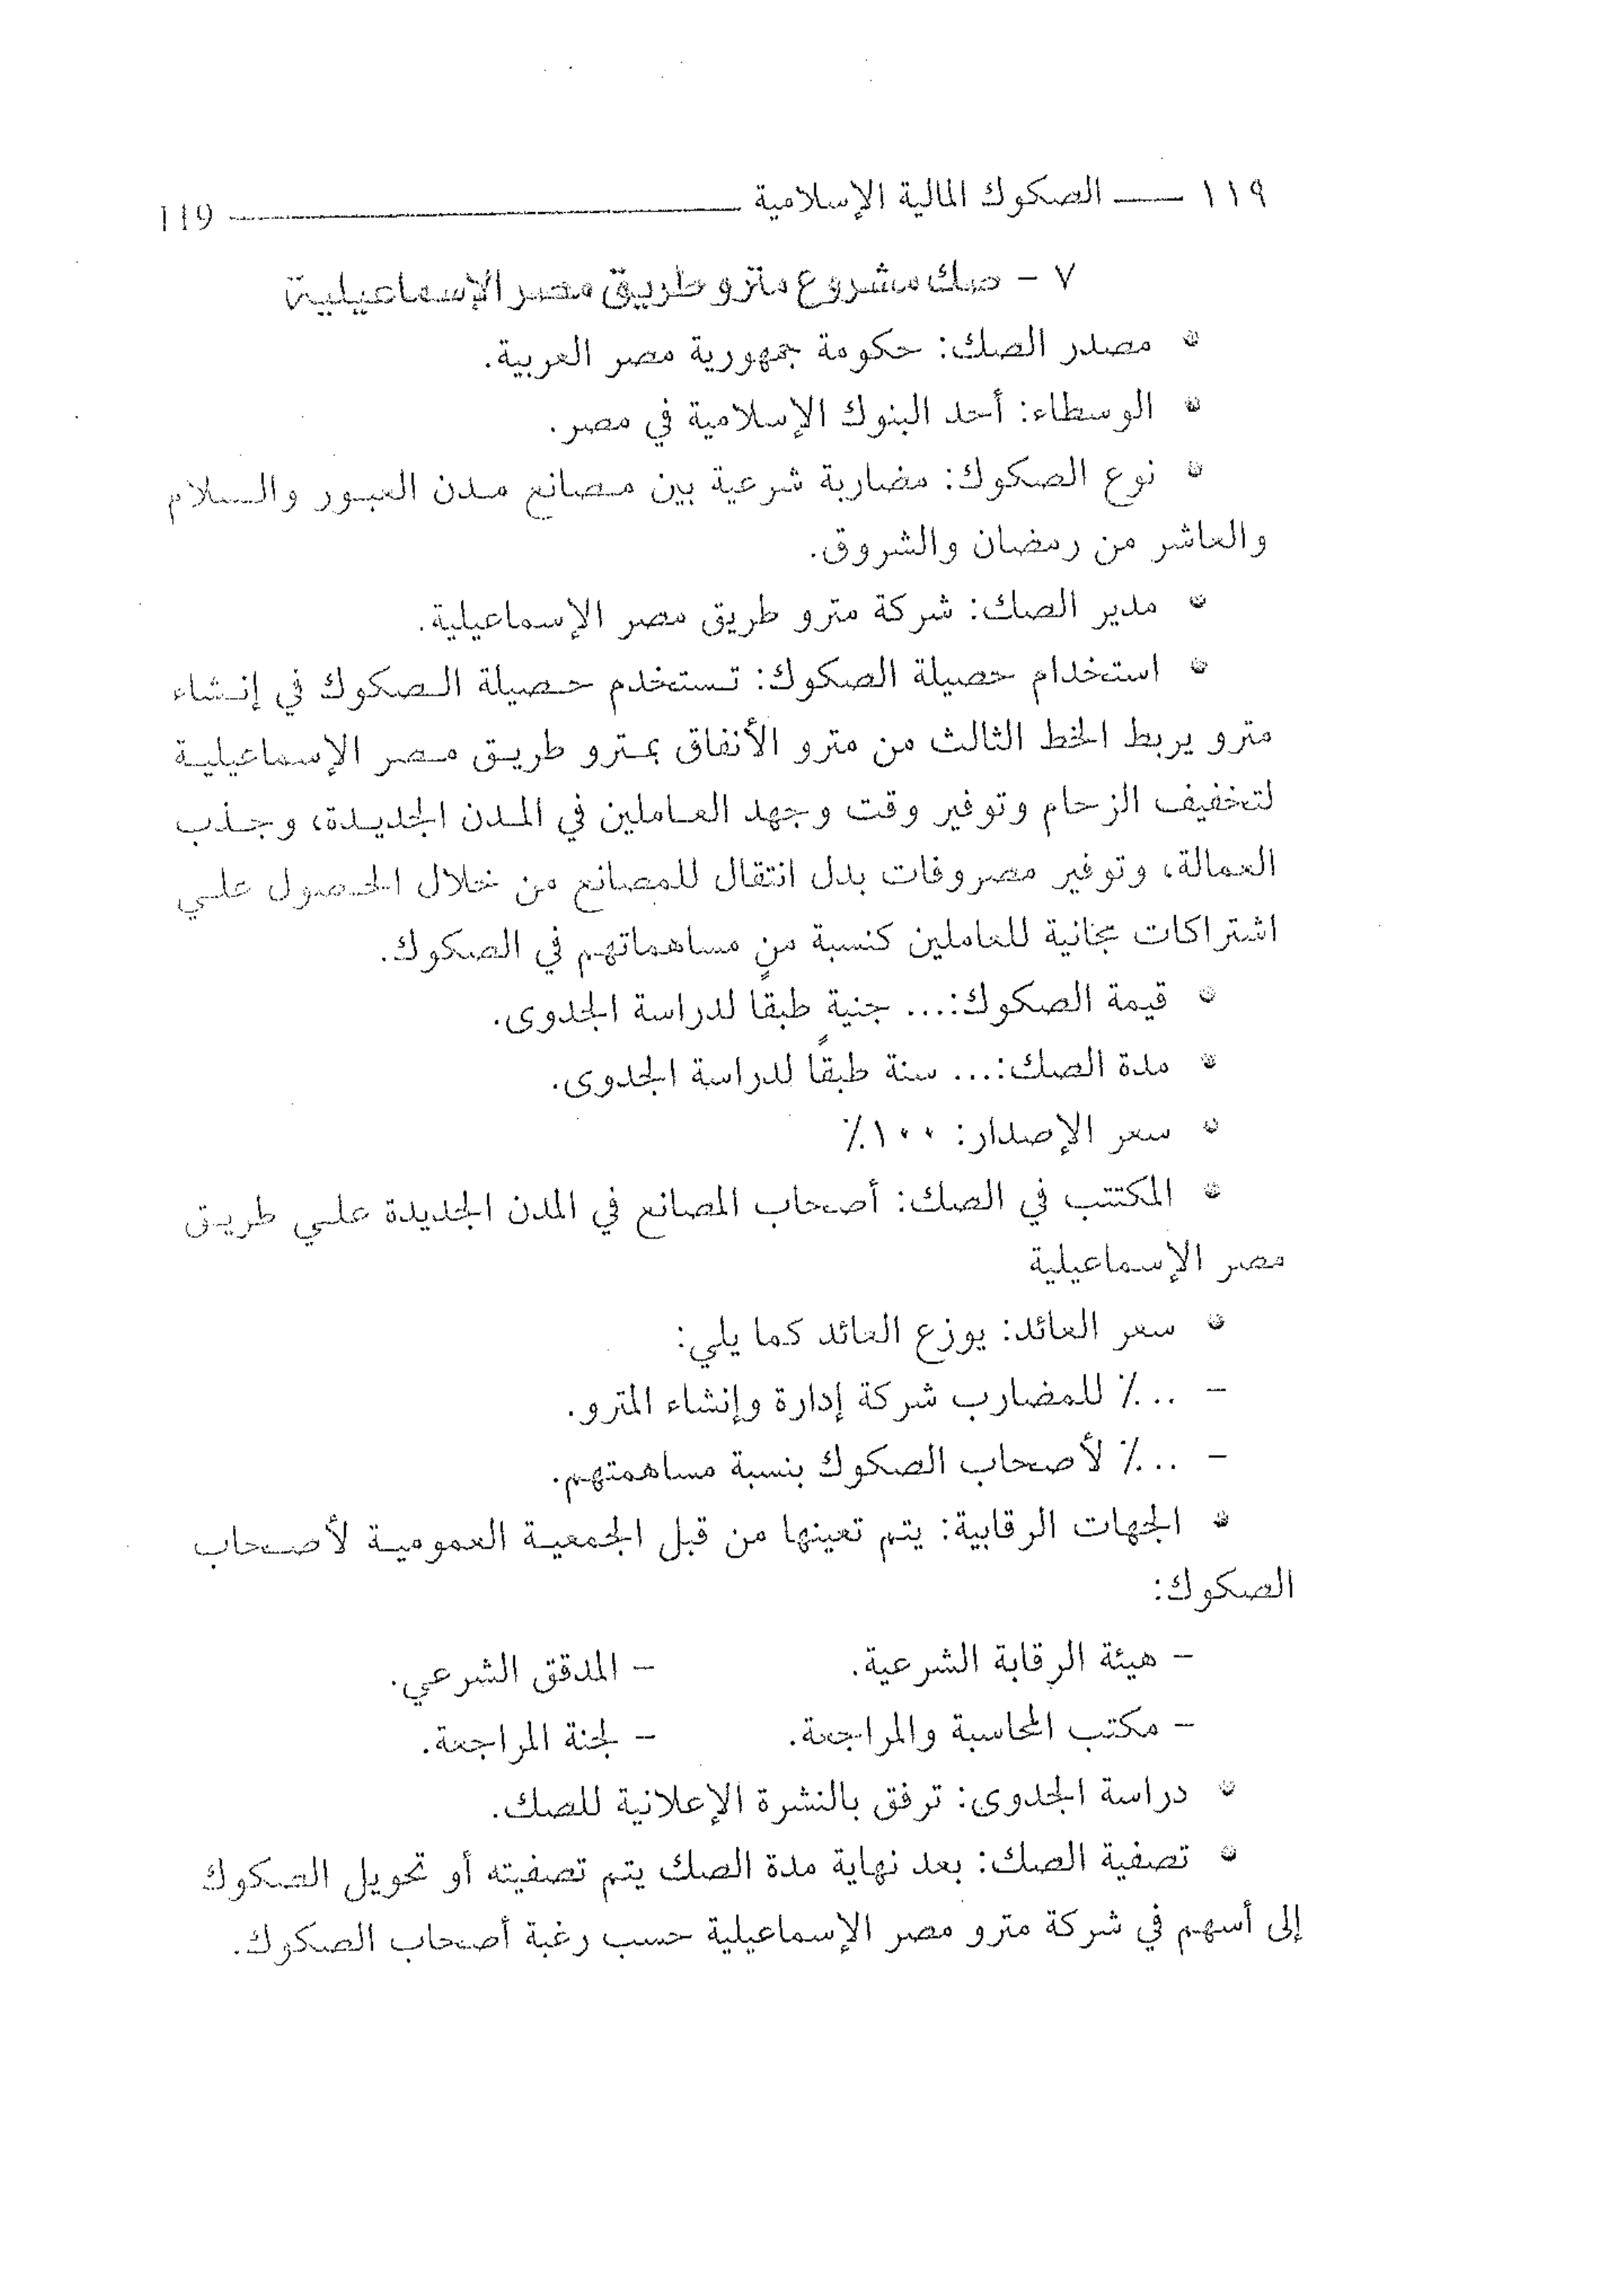 ١١٩ — الصكوك المالية الإسلامية — 119
٧ - صك مشروع مترو طريق مصر الإسماعيلية
* مصدر الصك: حكومة جمهورية مصر العربية.
* الوسطاء: أحد البنوك الإسلامية في مصر.
* نوع الصكوك: مضاربة شرعية بين مصانع مدن العبور والسلام
والعاشر من رمضان والشروق.
* مدير الصك: شركة مترو طريق مصر الإسماعيلية.
* استخدام حصيلة الصكوك: تستخدم حصيلة الصكوك في إنشاء
مترو يربط الخط الثالث من مترو الأنفاق بمترو طريق مصر الإسماعيلية
لتخفيف الزحام وتوفير وقت وجهد العاملين في المدن الجديدة، وجذب
العمالة، وتوفير مصروفات بدل انتقال للمصانع من خلال الحصول علي
اشتراكات مجانية للعاملين كنسبة من مساهماتهم في الصكوك.
* قيمة الصكوك:... جنية طبقًا لدراسة الجدوى.
* مدة الصك:... سنة طبقًا لدراسة الجدوى.
* سعر الإصدار: ١٠٠٪
* المكتتب في الصك: أصحاب المصانع في المدن الجديدة علي طريق
مصر الإسماعيلية
* سعر العائد: يوزع العائد كما يلي:
- ...٪ للمضارب شركة إدارة وإنشاء المترو.
- ...٪ لأصحاب الصكوك بنسبة مساهمتهم.
* الجهات الرقابية: يتم تعينها من قبل الجمعية العمومية لأصحاب
الصكوك:
- هيئة الرقابة الشرعية. - المدقق الشرعي.
- مكتب المحاسبة والمراجعة. - لجنة المراجعة.
* دراسة الجدوى: ترفق بالنشرة الإعلانية للصك.
* تصفية الصك: بعد نهاية مدة الصك يتم تصفيته أو تحويل الصكوك
إلى أسهم في شركة مترو مصر الإسماعيلية حسب رغبة أصحاب الصكوك.